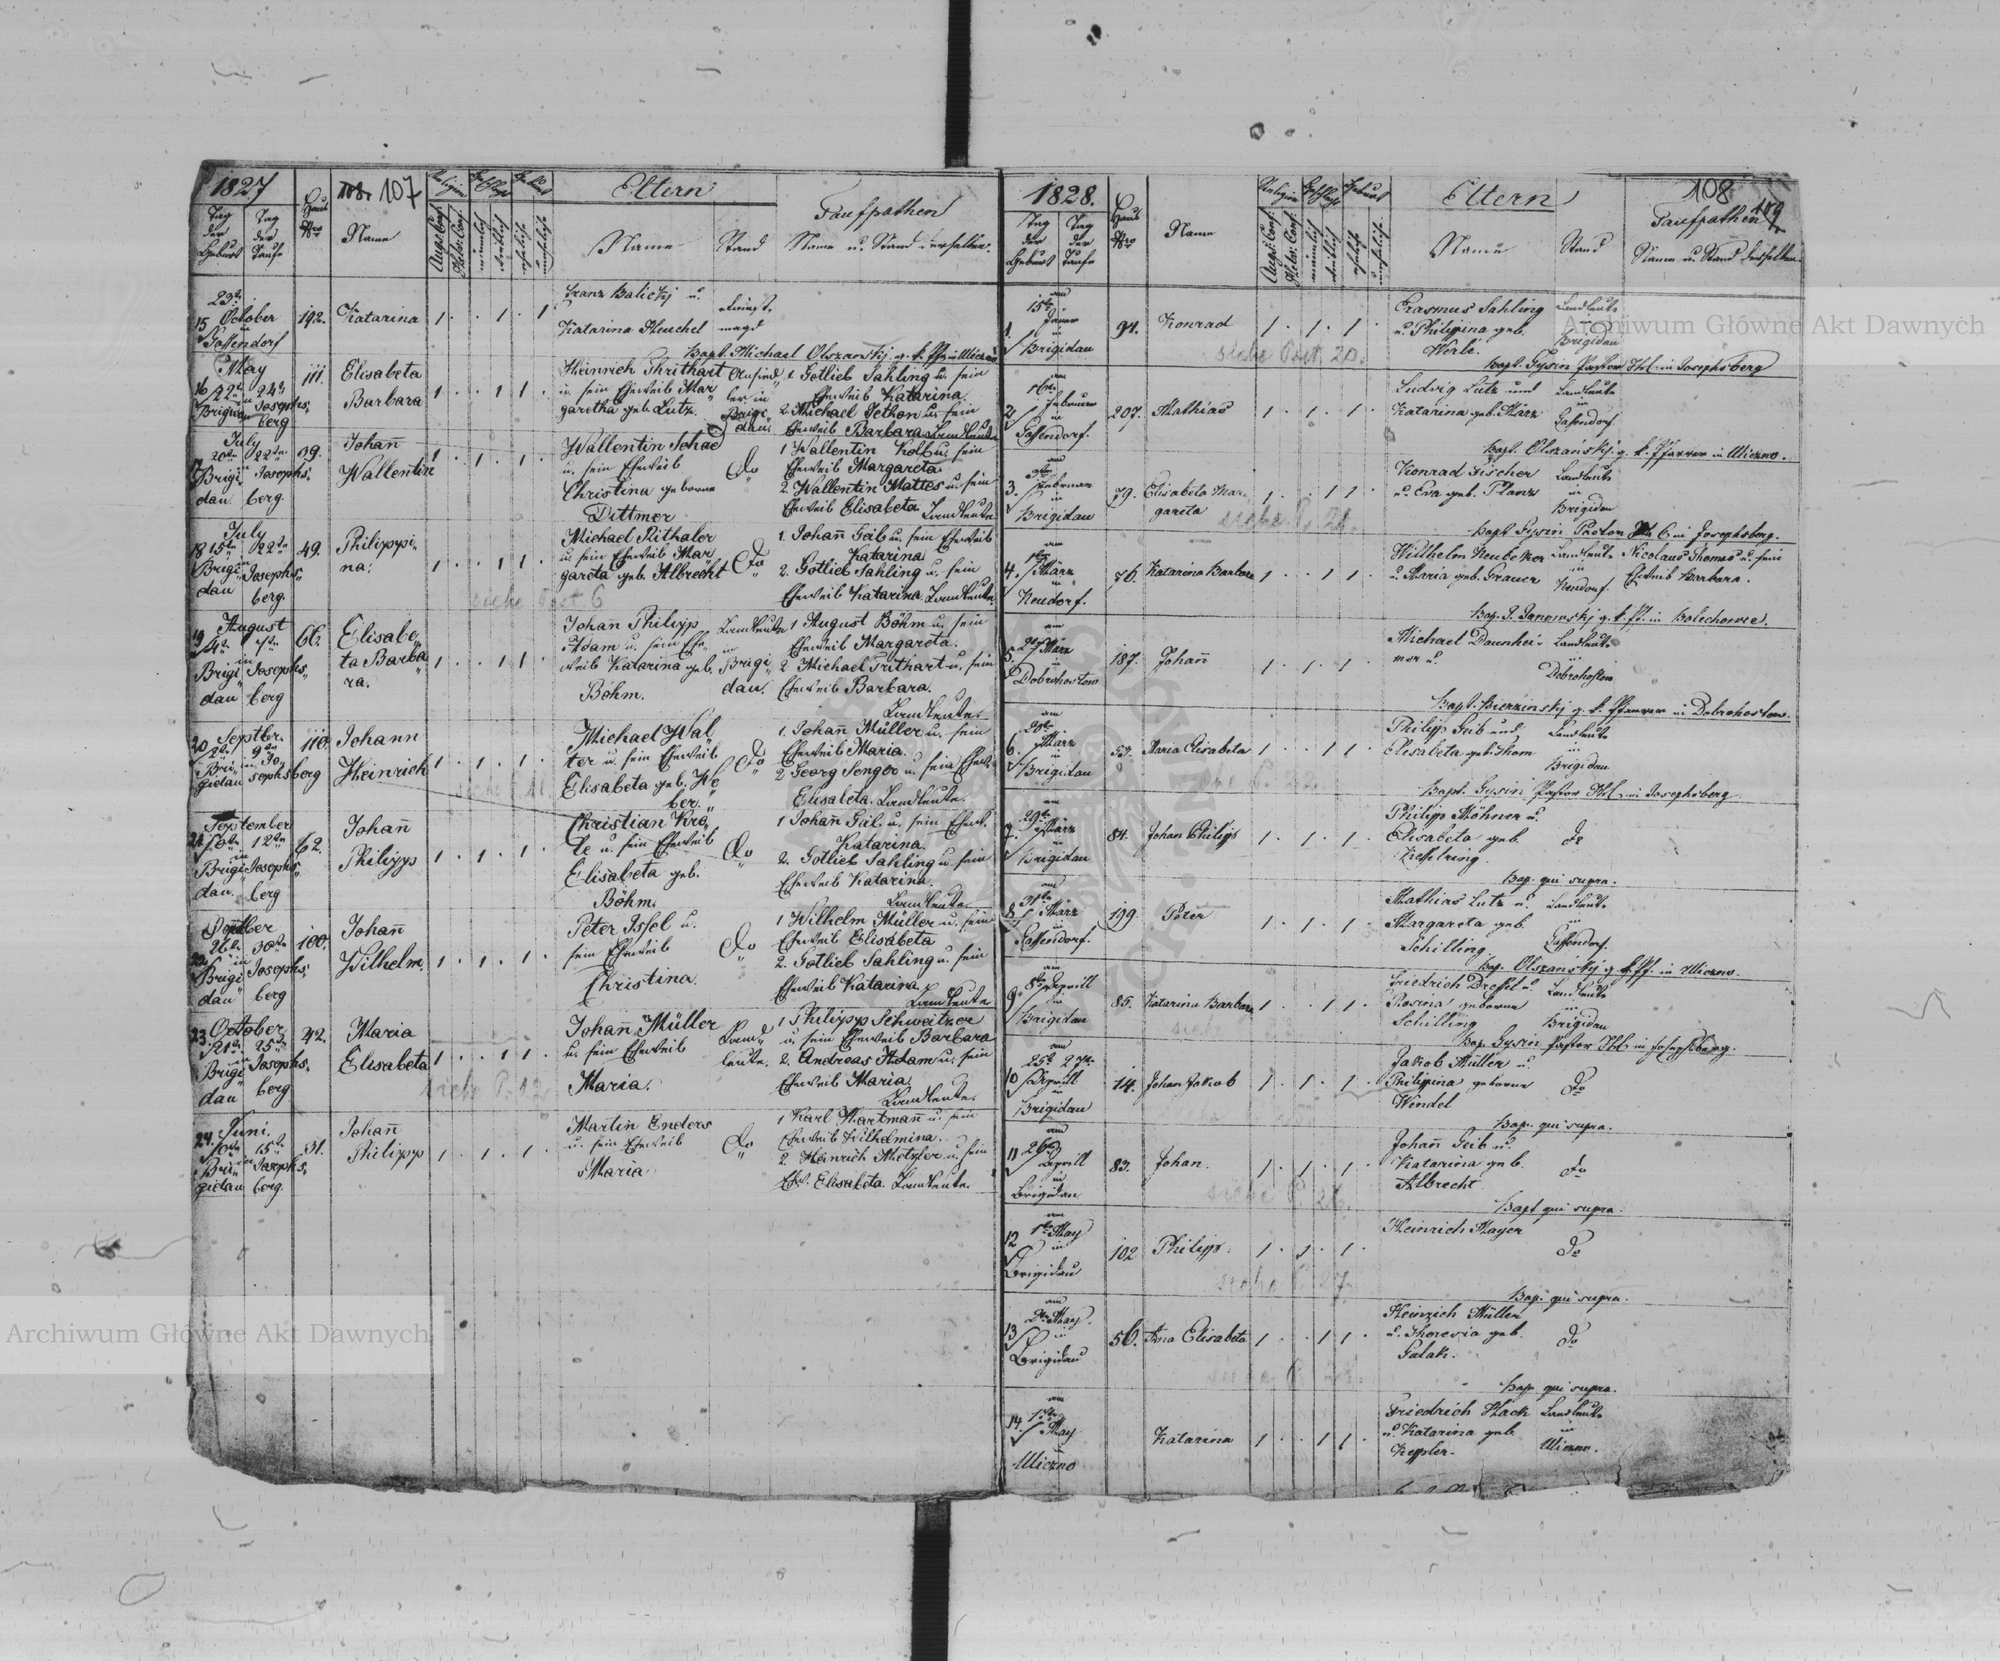 1827
107
Haus Nro
Name
Tag der Geburt
Tag der Taufe
Religion
Augs: Conf.
Helv: Conf.
männlich
weiblich
eheliche
uneheliche
Eltern
Name
Stand
Taufpathen
Name u. Stand derselben.
15
October
in
Gassendorf
192.
Katarina
Franz Balickj u.
Katarina Heuchel
Dienst-
magd
Bapt. Michael Olszanskj g. k.
16
May
22tn 24tn
Brigidau
Josephs
berg
111.
Elisabeta
Barbara
Heinrich Thrithart
u. sein Eheweib Mar
garitha geb. Lutz.
Ansied
ler in
Brigi
dau
1 Gotlieb Sahling u. sein
Eheweib Katarina.
2. Michael Jethon u. sein
Eheweib Barbara Landleute
July
20tn 22tn
Brigi
dau
Josephs
berg.
39.
Johan̄
Wallentin
Wallentin Schae
u. sein Eheweib
Christina geborne
Dittmer
Do
1 Wallentin Kolb u. sein
Eheweib Margareta.
2. Wallentin Mattes u. sein
Eheweib Elisabeta Landleute
18
July
15tn 22tn
Brigi
dau
Josephs
berg.
49.
Philippi
na.
Michael Rithaler
u. sein Eheweib Mar
gareta geb. Albrecht
Do
siehe Post. 6
1. Johan̄ Geib u. sein Eheweib
Katarina
2. Gotlieb Sahling u. sein
Eheweib Katarina Landleute.
19
August
4tn 7tn
in
Brigi
dau
Josephs
berg
66.
Elisabe
ta Barba
ra.
Johan Philipp
Adam u. sein Ehe
weib Katarina geb.
Böhm.
Landleute
in
Brigi
dau.
1 August Böhm u. sein
Eheweib Margareta.
2 Michael Trithart u. sein
Eheweib Barbara.
Landleute.
20
Septbr.
9tn
Bri
gidau
in Jo
sephsberg
110.
Johann
Heinrich
Michael Wal
ter u. sein Eheweib
Elisabeta geb. We
ber.
Do
1. Johan̄ Müller u. sein
Eheweib Maria.
2 Georg Senger u. sein Ehew.
Elisabeta. Landleute.
21
September
10tn 12tn
in
Brigi
dau.
Josephs
berg
62.
Johan̄
Philipp
Christian Kro
le u. sein Eheweib
Elisabeta geb.
Böhm.
Do
1 Johan̄ Geib u. sein Ehew.
Katarina.
2. Gotlieb Sahling u. sein
Eheweib Katarina.
Landleute
22.
26tn 30tn
in
Brigi
dau
Josephs
berg
100.
Johan̄
Wilhelm.
Peter Issel u.
sein Eheweib
Christina.
Do
1 Wilhelm Müller u. sein
Eheweib Elisabeta
2. Gotlieb Sahling u. sein
Eheweib Katarina.
Landleute
23.
October
21tn 25tn
in
Brigi
dau
Josephs
berg
42.
Maria
Elisabeta
siehe P. 12
Johan̄ Müller
u. sein Eheweib
Maria.
Land
leute.
1 Philipp Schweitzer
u. sein Eheweib Barbara
2. Andreas Adam u. sein
Eheweib Maria.
Landleute.
24.
Juni.
10tn 15tn
Bri
gidau
in Josephs
berg.
31.
Johan̄
Philipp
Martin Enders
u. sein Eheweib
Maria.
Do
1 Karl Hartman̄ u. sein
Eheweib Wilhelmina.
2. Heinrich Metzler u. sein
Ehw. Elisabeta. Landleute.
1828.
Haus Nro
Tag der Geburt
Tag der Taufe
Name
Religion
Geschlecht
Geburt
Augs: Conf.
Helv: Conf.
männlich
weiblich
eheliche
uneheliche
Eltern
Name
Stand
108
109
Taufpathen
Name u. Stand derselben.
1
am
15tn
Jäner
in
Brigidau
91.
Konrad
siehe Post. 20.
Erasmus Sahling
u. Philipina geb.
Werle.
Landleute
in
Brigidau
Bapt. Gysin Pastor H.C. in Josephsberg
2
am
16tn
Februar
in
Gassendorf.
207.
Mathias
Ludwig Lutz und
Katarina geb. März
Landleute
in
Gassendorf
Bapt. Olszanskj g. k. Pfarrer in Uliczno.
3.
am
3tn
Februar
in
Brigidau
79.
Elisabeta Mar
gareta
siehe P. 21.
Konrad Fischer
u. Eva geb. Planz
Landleute
in
Brigidau
Bapt. Gysin Pastor H.C. in Josephsberg.
4.
am
März
in
Neudorf.
76.
Katarina Barbara
Willhelm Neubeker
u. Maria geb. Grauer
Landleute
in
Neudorf.
Nicolaus Thomas u. sein
Eheweib Barbara.
Bap. P. Janowskj g. k. Pf. in Bolechowce.
5.
am
27 März
in
Dobrohostow
187.
Johan̄
Michael Daunhei
mer u.
Landleute
in
Dobrohostow
Bapt. Bierzinskj g. k. Pfarrer in Dobrohostow.
6.
am
20tn
März
in
Brigidau
53.
Maria Elisabeta
Philipp Geib und
Elisabeta geb. Thom
Landleute
in
Brigidau
Bapt. Gysin Pastor H.C. in Josephsberg.
7.
am
29tn
März
in
Brigidau
84.
Johan Philipp
Philipp Möhner u.
Elisabeta geb.
Kesslring.
do
Bap. qui supra.
8.
am
31tn
März
in
Gassendorf.
199
Peter
Mathias Lutz u.
Margareta geb.
Schilling
Landleute
in
Gassendorf.
Bap. Olszanskj g. k. Pf. in Uliczno.
9.
am
8tn Aprill
in
Brigidau
85.
Katarina Barbara
siehe
Friedrich Dressl u.
Rosina geborne
Schilling
Landleute
in
Brigidau
Bap. Gysin Pastor H.C. in Josephsberg.
10
am
25tn 27tn
Aprill
in
Brigidau
14.
Johan Jakob
Jakob Müller u.
Philippina geborne
Wendel
Do
Bap. qui supra.
11
am
26tn
Aprill
in
Brigidau
83.
Johan.
Johan̄ Geib u.
Katarina geb.
Albrecht
do
Bapt qui supra.
12
am
1tn May
in
Brigidau
102
Philipp.
siehe P. 27.
Heinrich Mayer
do
Bap. qui supra.
13
am
2tn May
in
Brigidau
56.
Ana Elisabeta
Heinrich Müller
u. Theresia geb.
Galak.
do
Bap. qui supra.
14.
am
May
Uliczno
Katarina
Friedrich Hack
u. Katarina geb.
Keppler.
Landleute
in
Uliczno.
Archiwum Główne Akt Dawnych
Archiwum Główne Akt Dawnych